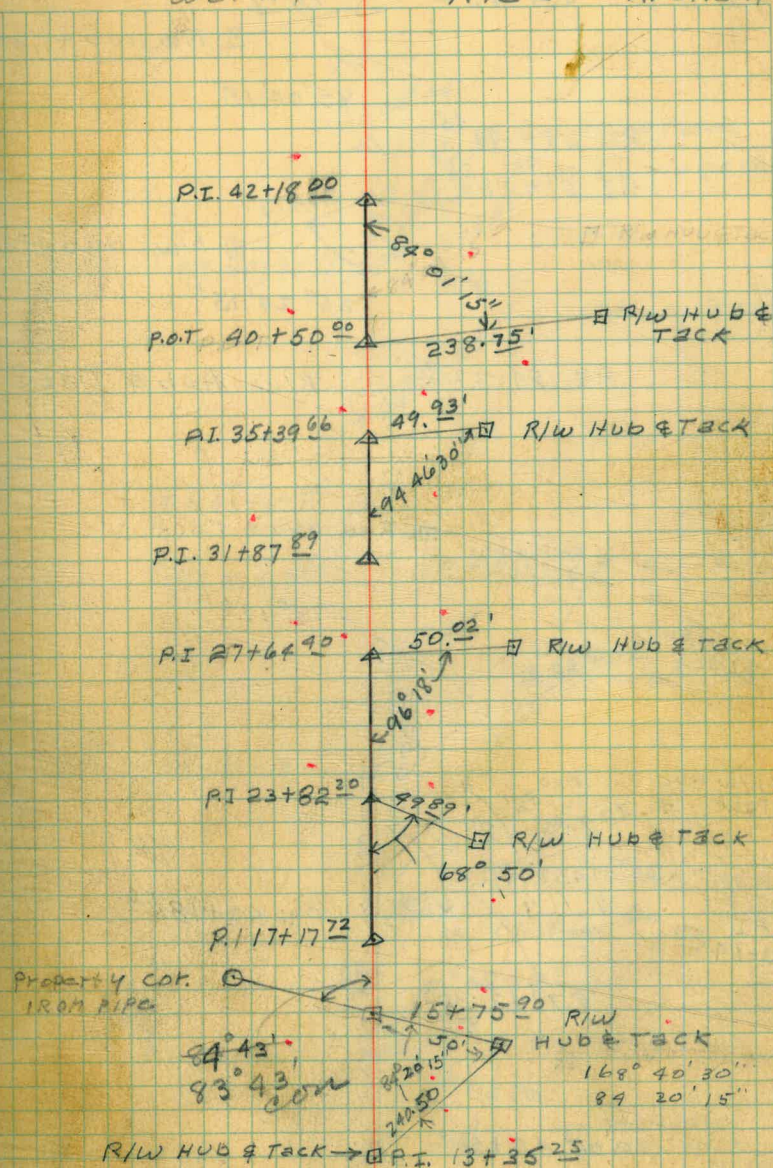 P.I. 42+18 00
84° 01' 15"
P.O.T. 40+50 00
238.75'
R/W Hub &
Tack
P.I. 35+39 66
49.93'
R/W Hub & Tack
94 46' 30"
P.I. 31+87 89
P.I 27+64 40
50.02'
R/W Hub & Tack
96° 18'
P.I 23+82 20
49.89'
R/W Hub & Tack
68° 50'
P.I 17+17 72
Property Cor.
Iron Pipe
15+75 90
R/W
Hub & Tack
50'
84° 43'
83° 43'
Cor
84° 20' 15"
168° 40' 30"
84 20 15"
240.50
R/W Hub & Tack
P.I. 13+35 25